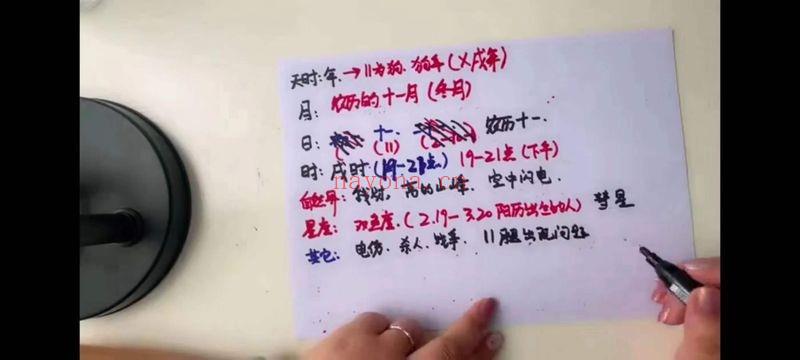 天时:年→11为狗.狗年(メ戌年)
月:农历的十一月(冬月)
日: 十一 农历十一.
(11)
时:戌时(19-21点) 19-21点(下午)
自然界: 高的山峰. 空中闪电.
nayona.cn
星座: 双鱼座.(2.19-3.20阳历出生的人) 彗星
其它: 电伤. 杀人. 11 腿出现问题